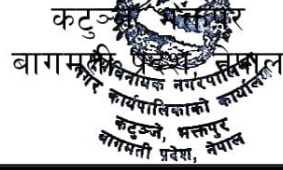 कटुञ्जे, भक्तपुर
बागमती प्रदेश, नेपाल
सूर्यविनायक नगरपालिका
नगर कार्यपालिकाको कार्यालय
कटुञ्जे, भक्तपुर
बागमती प्रदेश, नेपाल